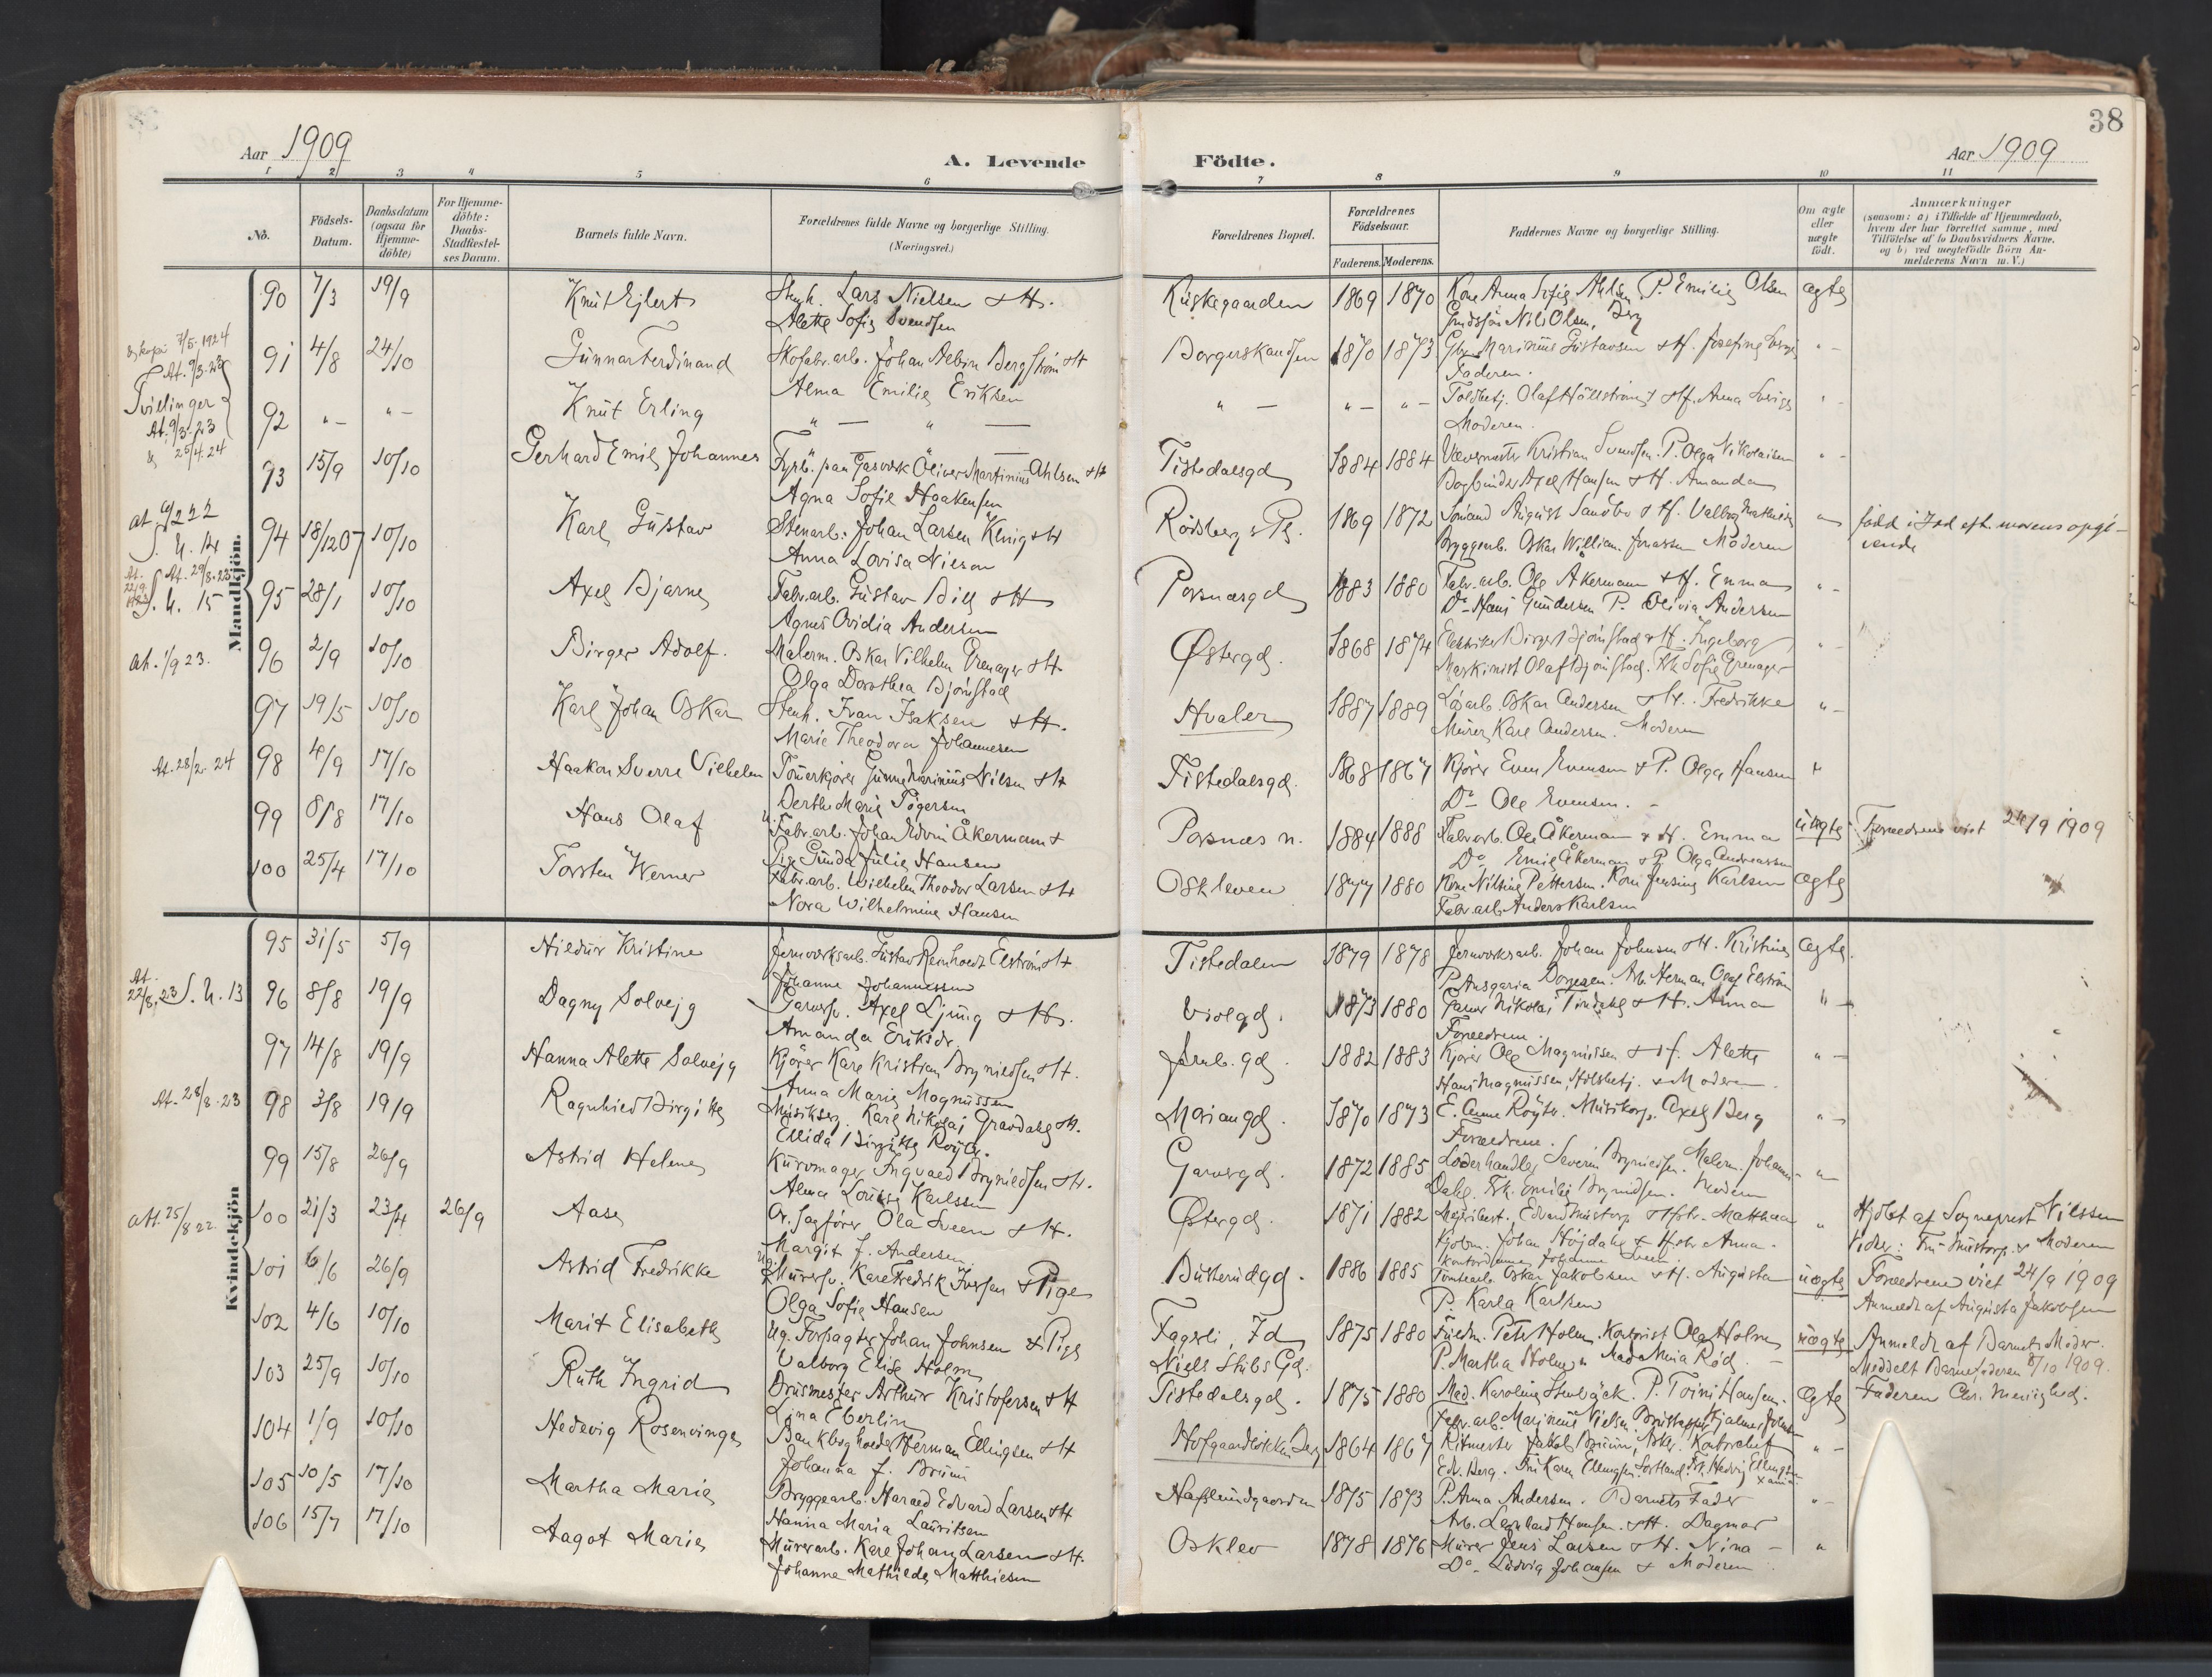 38
Aar 1909
A. Levende
Födte.
Aar 1909
1 2 3 4 5 6 7 8 9 10 11
No.
Födsels-Datum.
Daabsdatum (ogsaa for Hjemme-döbte)
For Hjemme-döbte: Daabs-Stadfæstel-ses Datum.
Barnets fulde Navn.
Forældrenes fulde Navne og borgerlige Stilling.
(Næringsvei.)
Forældrenes Bopæl.
Forældrenes Födselsaar.
Faderens. Moderens.
Faddernes Navne og borgerlige Stilling.
Om ægte eller uægte födt.
Anmærkninger
(saasom: a) i Tilfælde af Hjemmedaab,
hvem der har forrettet samme, med
Tilföielse af to Daabsvidners Navne.
og b) ved uegtefödte Börn An-
melderens Navn m. V.)
Mandkjön.
90 7/3 19/9 Knut Ejlert Lars Nielsen & H. 1869 1870 Kone Anna Sofie P. Emilie Olsen ægte
Alette Sofie Svendsen Nils Olsen, Berg
7/5-1924
At. 9/3-23
91 4/8 24/10 Gunnar Ferdinand Skofabr.arb. Johan Albin Bergström & H 1870 1873 Marinius Gustavsen & H. Josefine " -
Alma Emilie Eriksen Faderen.
Tvillinger
At. 9/3-23
92 " - " - Knut Erling " - " - " - " - " - Toldbetj. Olaf Hällström & H. Anna " -
Moderen.
25/4.24
93 15/9 10/10 Gerhard Emil Johannes Fyrb. paa Gasverk Oliver Martinius Ahlsen & H Tistedalsgd 1884 1884 Kristian Svendsen. P. Olga Nikolaisen " -
Agna Sofie Haakensen Bogbinder Axel Hansen & H. Amanda
S. U. 14
94 18/12 07 10/10 Karl Gustav Stenarb. Johan Larsen & H 1869 1872 Sömand August & H. Valborg Mathilde " födt i Idd eft. morens opgi-
Anna Lovisa Nilson Bryggearb. Oskar William Jonassen Moderen vende
At. 29/8-23
S. U. 15
95 28/1 10/10 Axel Bjarne Fabr.arb. Gustav & H Porsnæsgd 1883 1880 Fabr.arb. Ole Akermann & H. Emma " -
Agnes Ovidia Andersen Do- Hans Gundersen P. Olivia Andersen
At. 1/9 23.
96 2/9 10/10 Birger Adolf. Malerm. Oskar Vilhelm Grenager & H. Østergd. 1868 1874 Birger Björnstad & H. Ingeborg " -
Olga Dorothea Björnstad Maskinist Olaf Björnstad. Frk Sofie Grenager
97 19/5 10/10 Karl Johan Oskar Stenh. Ivar Isaksen & H. Hvaler 1887 1889 Oskar Andersen & H. Fredrikke " -
Marie Theodora Johannesen Murer Karl Andersen. Moderen
At. 28/2-24
98 4/9 17/10 Haakon Sverre Vilhelm Marinius Nilsen & H Tistedalsgd. 1868 1867 Kjörer Even Evensen & P. Olga Hansen "
Berthe Marie Do- Ole Evensen.
99 8/8 17/10 Hans Olaf Fabr.arb. Johan Edvin Åkermann & Porsnæs n. 1884 1888 Fabr.arb. Ole Åkerman & H. Emma uægte Forældrene viet 24/9 1909
Pige Gunda Julie Hansen Do Emil Åkerman & P. Olga Andreassen
100 25/4 17/10 Torsten Werner Fabr.arb. Wilhelm Theodor Larsen & H Oskleven 1877 1880 Kone Nilsine Pettersen. Kone Jensine Karlsen ægte
Nora Wilhelmine Hansen Fabr.arb. Anders Karlsen
Kvindekjön
95 31/5 5/9 Hildur Kristine Jernverksarb. Gustav Reinholdt Elström & H Tistedalen 1879 1878 Jernverksarb. Johan Johnsen & H. Kristine ægte.
Johanne Johannessen P. Ansgaria Borgesen. Arb. Herman Olaf Elström
At. 22/8.23 S. U. 13
96 8/8 19/9 Dagny Solveig Garversv. Axel Ljung & H. Violgd. 1873 1880 Garver Nikolai Tindahl & H. Anna " -
Amanda Eriksdr. Forældrene
97 14/8 19/9 Hanna Alette Solveig Kjörer Karl Kristian Brynildsen & H. Jernb.gd. 1882 1883 Kjörer Ole Magnussen & H. Alette " -
Anna Marie Magnussen Hans Magnussen & Moderen.
At. 28/8.23
98 3/8 19/9 Ragnhild Birgitte Karl Nikolai Gravdahl & H. Moriangd. 1870 1873 E. Anna Röytr. Musikorp. Axel Berg " -
Ellida Birgitte Forældrene.
99 15/8 26/9 Astrid Helene Kurvmager Ingvald Brynildsen & H. Garvergd. 1872 1885 Loderhandler Severin Brynildsen. Malerm. Johannes "
Alma Lovise Karlsen Dahl. Frk. Emilie Brynildsen. Moderen
Att. 25/8 22.
100 21/3 23/4 26/9 Aase Or. Sagförer Ola Sveen & H. Østergd. 1871 1882 Edvard Mustorp & Matthea " Hjdbt af Sogneprest Nilssen
Margit J. Andersen Johan Höjdahl & Anna. Vidner: Fru Mustorp & Moderen
101 6/6 26/9 Astrid Fredrikke Murersv. Karl Fredrik Iversen & Pige Busterudgd. 1886 1885 Oskar Jakobsen & H. Augusta uægte Forældrene viet 24/9 1909
Olga Sofie Hansen P. Karla Karlsen Anmeldt af Augusta Jakobsen
102 4/6 10/10 Marit Elisabeth Ug. Forpagter Johan Johnsen & Pige Fagerli, Id 1875 1880 Peter Holm. Kontorist Olaf Holm uægte Anmeldt af Barnets Moder.
Valborg Elise Holm Niels Stubs Gd. P. Martha Holm Nina Röd. Meddelt Barnefaderen 8/10 1909.
103 25/9 10/10 Ruth Ingrid Brusmester Arthur Kristofersen & H Tistedalsgd. 1875 1880 Mad. Karoline Stenbäck. P. Toini Hansen. ægte Faderen Chr. Menighed.
Lina Eberlin Fabr.arb. Marinius Nielsen. Hjalmar
104 1/9 10/10 Hedevig Rosenvinge Bankbogholder Herman Ellingsen & H Hofgaardlökken Berg 1864 1867 Ritmester Jakob Bruun, Kontorchef " -
Johanna J. Bruun Edv. Berg. Fru Karen Ellingsen. Frk. Hedvig Ellingsen
105 10/5 17/10 Martha Marie Bryggearb. Harald Edvard Larsen & H Hafslundgaarden 1875 1873 P. Anna Andersen. Barnets Fader " -
Hanna Maria Lauritsen Arb. Leonhard Hansen & H. Dagmar
106 15/7 17/10 Aagot Marie Murerarb. Karl Johan Larsen & H. Osklev 1878 1876 Murer Jens Larsen & H. Nina - "
Johanne Mathilde Matthiesen Do- Ludvig Johansen & Moderen